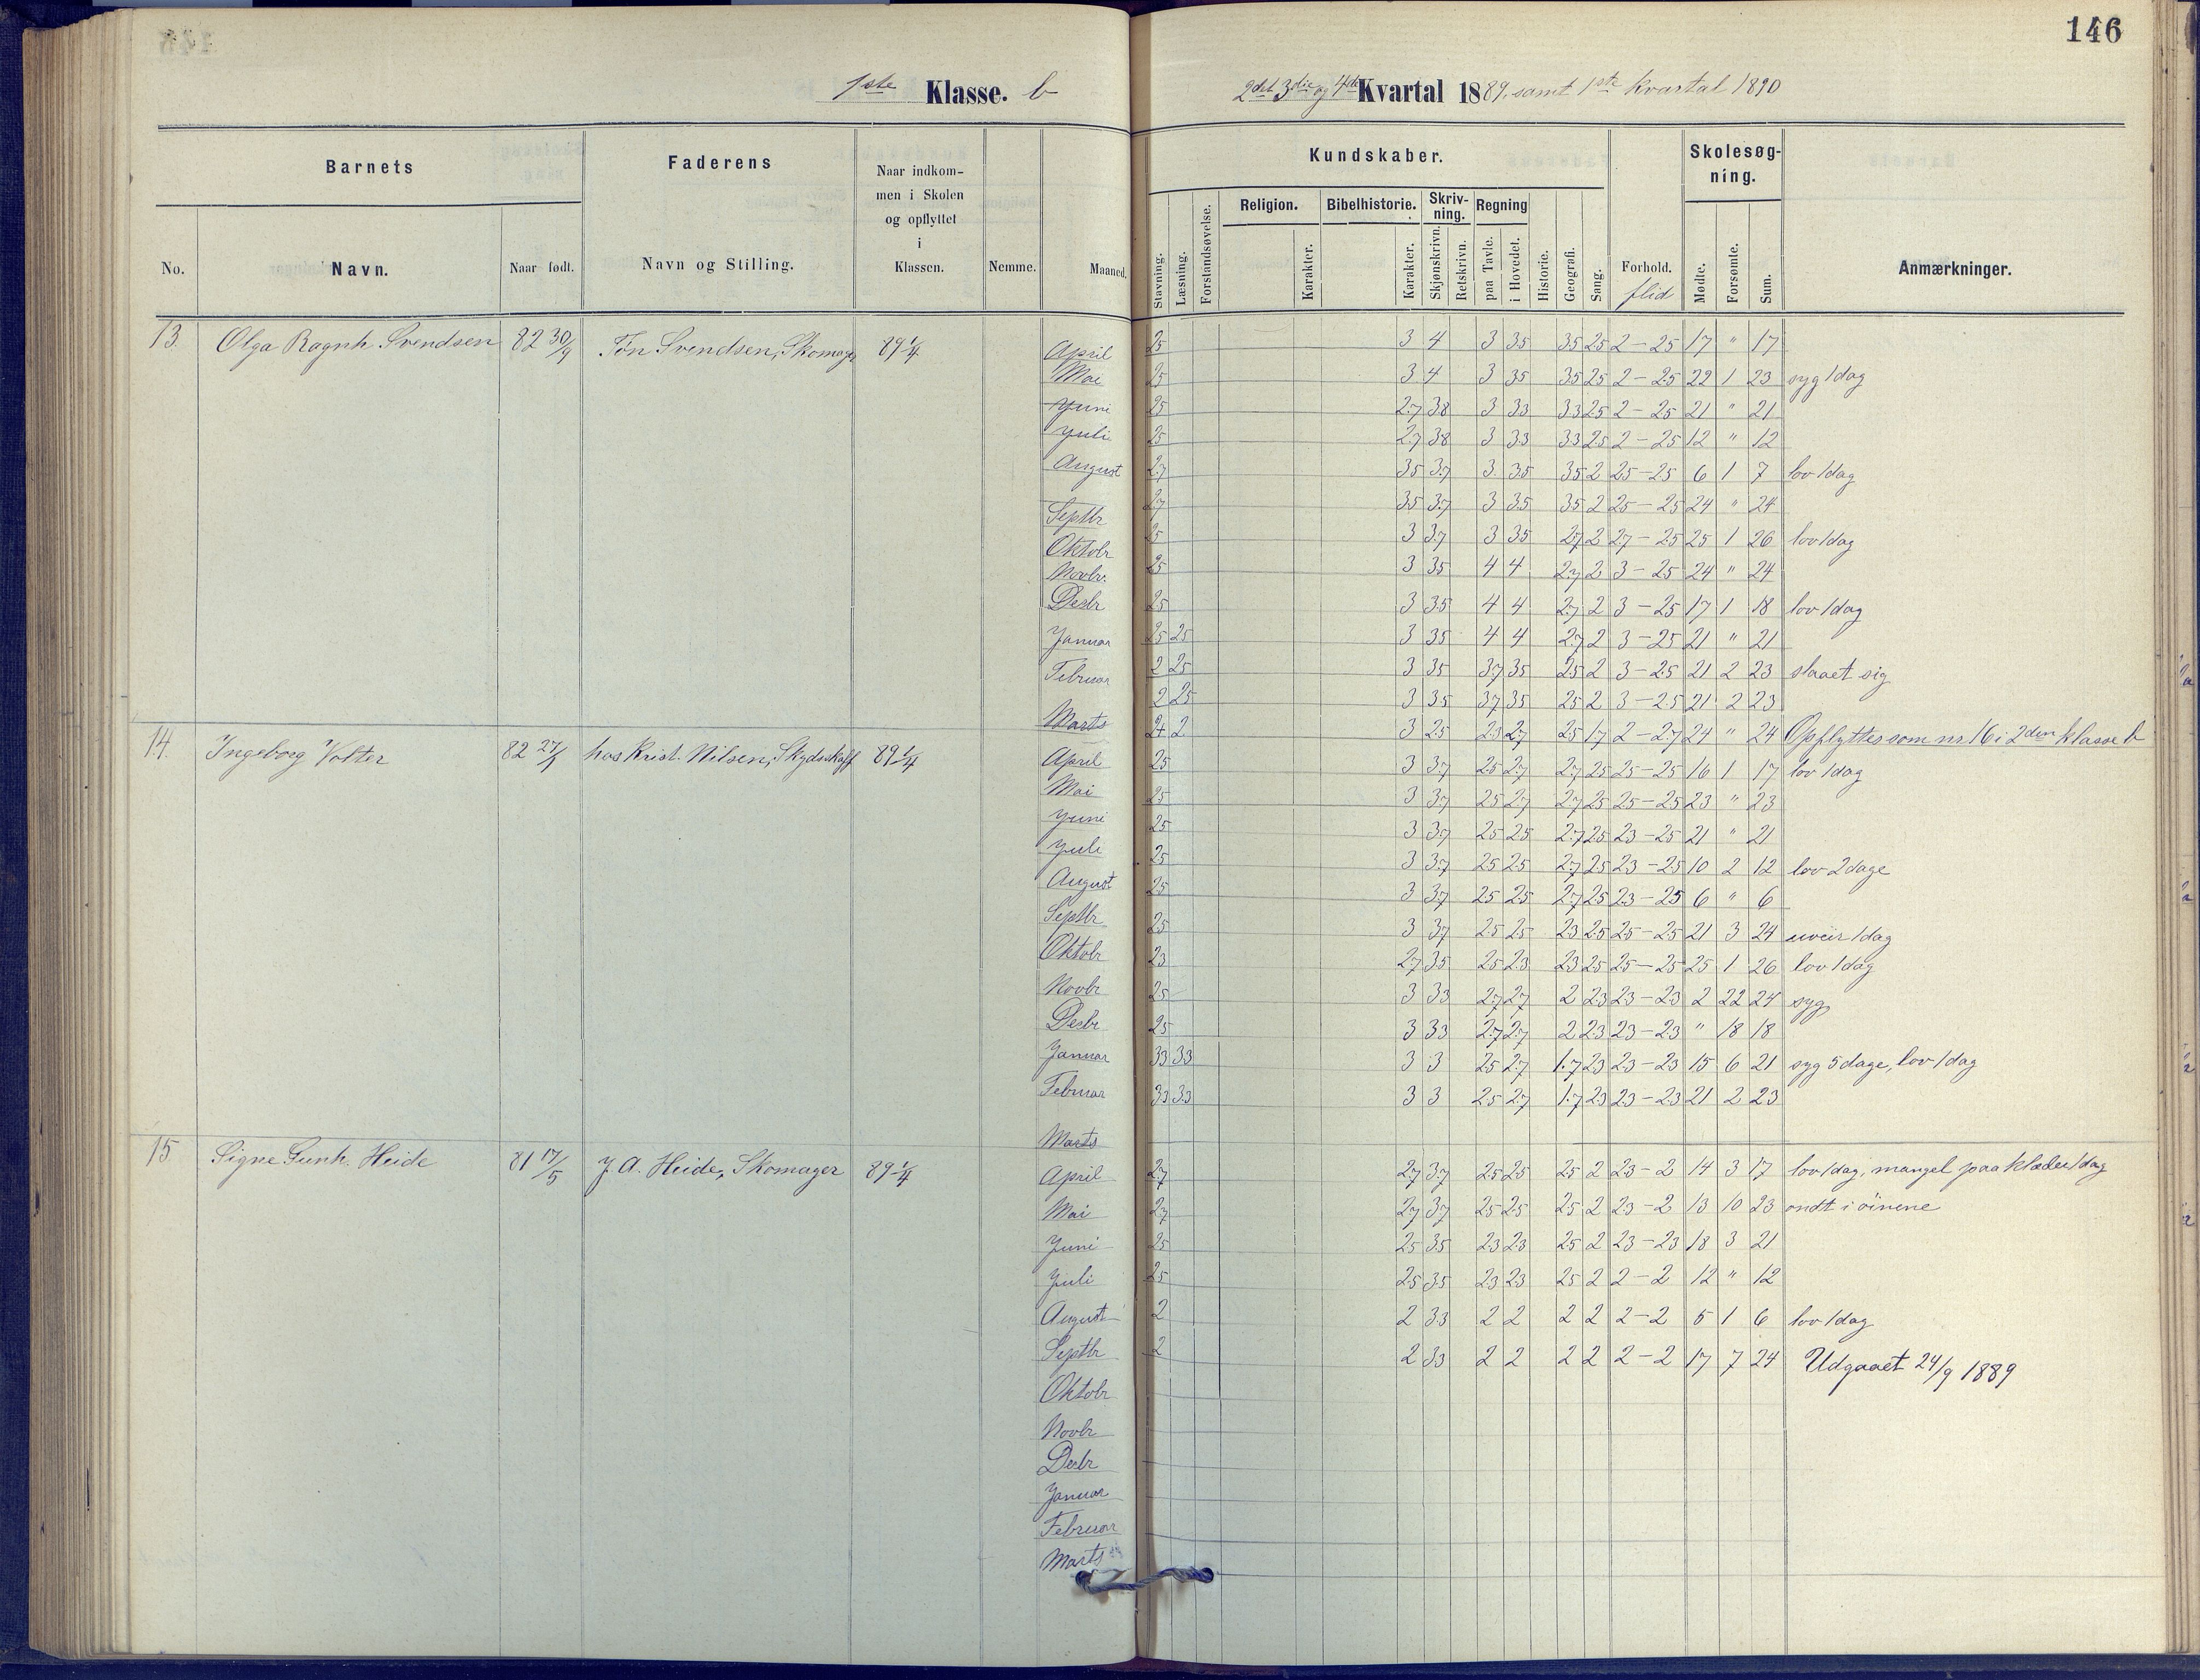 146
1ste Klasse. b
2det 3die og 4de Kvartal 1889, samt 1ste kvartal 1890
Barnets
Faderens
Naar indkommen i Skolen og opflyttet i Klassen.
Nemme.
Maaned.
Kundskaber.
Skolesøgning.
No.
Navn.
Naar født.
Navn og Stilling.
Stavning.
Læsning.
Forstandsøvelse.
Religion.
Karakter.
Bibelhistorie.
Karakter.
Skrivning.
Skjønskrivn.
Retskrivn.
Regning
paa Tavle.
i Hovedet.
Historie.
Geografi.
Sang.
Forhold.
flid
Mødte.
Forsømte.
Sum.
Anmærkninger.
13. Olga Ragnh. Svendsen 82 30/9 Tøn Svendsen, Skomager 89 1/4
April 25 3 4 3 35 35 25 2–25 17 " 17
Mai 25 3 4 3 35 35 25 2–25 22 1 23 syg 1 dag
Juni 25 27 38 3 33 33 25 2–25 21 " 21
Juli 25 27 38 3 33 33 25 2–25 12 " 12
August 27 35 37 3 35 35 2 25–25 6 1 7 lov 1 dag
Septbr 27 35 37 3 35 35 2 25–25 24 " 24
Oktobr 25 3 37 3 35 27 2 27–25 25 1 26 lov 1 dag
Novbr. 25 3 35 4 4 27 2 3–25 24 " 24
Desbr 25 3 35 4 4 27 2 3–25 17 1 18 lov 1 dag
Januar 25 25 3 35 4 4 27 2 3–25 21 " 21
Februar 2 25 3 35 37 35 25 2 3–25 21 2 23 slaaet sig
2 25 3 35 37 35 25 2 3–25 21 2 23
Marts 24 2 3 25 23 27 25 17 2–27 24 " 24 Opflyttes som nr 16 i 2den klasse b
14. Ingeborg Volter 82 27/1 hos Krist. Nilsen, Skydsskaff 89 1/4
April 25 3 37 25 27 27 25 25–25 16 1 17 lov 1 dag
Mai 25 3 37 25 27 27 25 25–25 23 " 23
Juni 25 3 37 25 25 27 25 23–25 21 " 21
Juli 25 3 37 25 25 27 25 23–25 10 2 12 lov 2 dage
August 25 3 37 25 25 27 25 23–25 6 " 6
Septbr 25 3 37 25 25 23 25 25–25 21 3 24 uveir 1 dag
Oktobr 23 27 35 25 23 23 25 25–25 25 1 26 lov 1 dag
Novbr 25 3 33 27 27 2 23 23–23 2 22 24 syg
Desbr 25 3 33 27 27 2 23 23–23 " 18 18
Januar 33 33 3 3 25 27 1.7 23 23–23 15 6 21 syg 5 dage, lov 1 dag
Februar 33 33 3 3 25 27 1.7 23 23–23 21 2 23
Marts
15. Signe Gunh. Heide 81 17/5 J. A. Heide, Skomager 89 1/4
April 27 27 37 25 25 25 2 23–2 14 3 17 lov 1 dag, mangel paa klæder 1 dag
Mai 27 27 37 25 25 25 2 23–2 13 10 23 ondt i öinene
Juni 25 25 35 23 23 25 2 23–23 18 3 21
Juli 25 25 35 23 23 25 2 2–2 12 " 12
August 2 2 33 2 2 2 2 2–2 5 1 6 lov 1 dag
Septbr 2 2 33 2 2 2 2 2–2 17 7 24 Udgaaet 24/9 1889
Oktobr
Novbr
Desbr
Januar
Februar
Marts